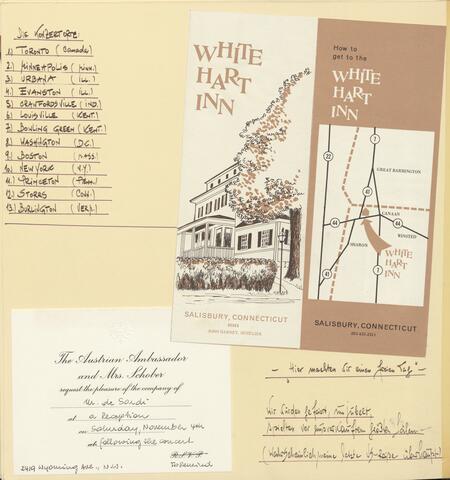 DIE KONZERTORTE:
1) TORONTO (Canada)
2) MINNEAPOLIS (Minn.)
3) URBANA (ILL.)
4) EVANSTON (ILL.)
5) CRAWFORDSVILLE (IND.)
6) LOUISVILLE (KENT.)
7) BOWLING GREEN (KENT.)
8) WASHINGTON (D.C.)
9) BOSTON (MASS.)
10) NEW YORK (N.Y.)
11) PRINCETON
12) STORRS (CONN.)
13) BURLINGTON (VERM.)
WHITE
HART
INN
SALISBURY, CONNECTICUT
JOHN HARNEY, INNKEEPER
How to
get to the
WHITE
HART
INN
22
7
GREAT BARRINGTON
41
44
CANAAN
44
WINSTED
SHARON
WHITE
HART
INN
41
7
SALISBURY, CONNECTICUT
The Austrian Ambassador
and Mrs. Schober
request the pleasure of the company of
Mr. de Sardi
at a reception
on Saturday, November 4th
at following the concert
R.S.V.P.
To Remind
2419 Wyoming Ave., N.W.
- "Hier machten wir einen freien Tag" -
Wir wurden gefeiert, umjubelt,
spielten vor ausverkauften großen Sälen -
(Wahrscheinlich meine letzte